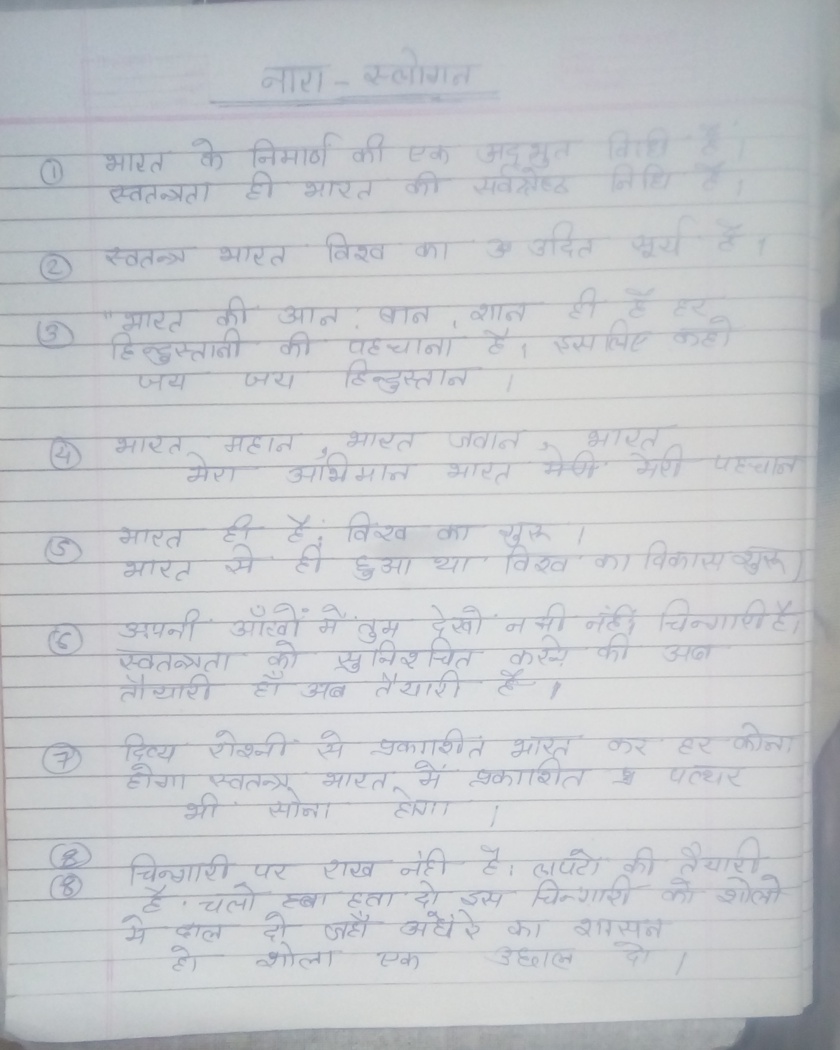 नारा - स्लोगन
① भारत के निमार्ण की एक अद्भुत विधि है।
स्वतन्त्रता ही भारत की सर्वश्रेष्ठ निधि है।
② स्वतन्त्र भारत विश्व का उदित सूर्य है।
③ "भारत की आन, बान, शान ही है हर
हिन्दुस्तानी की पहचाना है। इसलिए कहो
जय जय हिन्दुस्तान।
④ भारत महान, भारत जवान, भारत
मेरा अभिमान भारत मेरी पहचान
⑤ भारत ही है, विश्व का गुरू।
भारत से ही हुआ था विश्व का विकास शुरू।
⑥ अपनी आँखों में तुम देखो नमी नंही चिन्गारी है।
स्वतन्त्रता को सुनिश्चित करने की अब
तैयारी हाँ अब तैयारी है।
⑦ दिव्य रोश्नी से प्रकाशित भारत कर हर कोना
होगा स्वतन्त्र भारत में प्रकाशित पत्थर
भी सोना होगा।
⑧
⑧ चिन्गारी पर राख नंही है। लपटो की तैयारी
है। चलो हवा हता दो इस चिन्गारी को शोलो
मे दाल दो जहाँ अधेंरे का शासन
हो शोला एक उछाल दो।